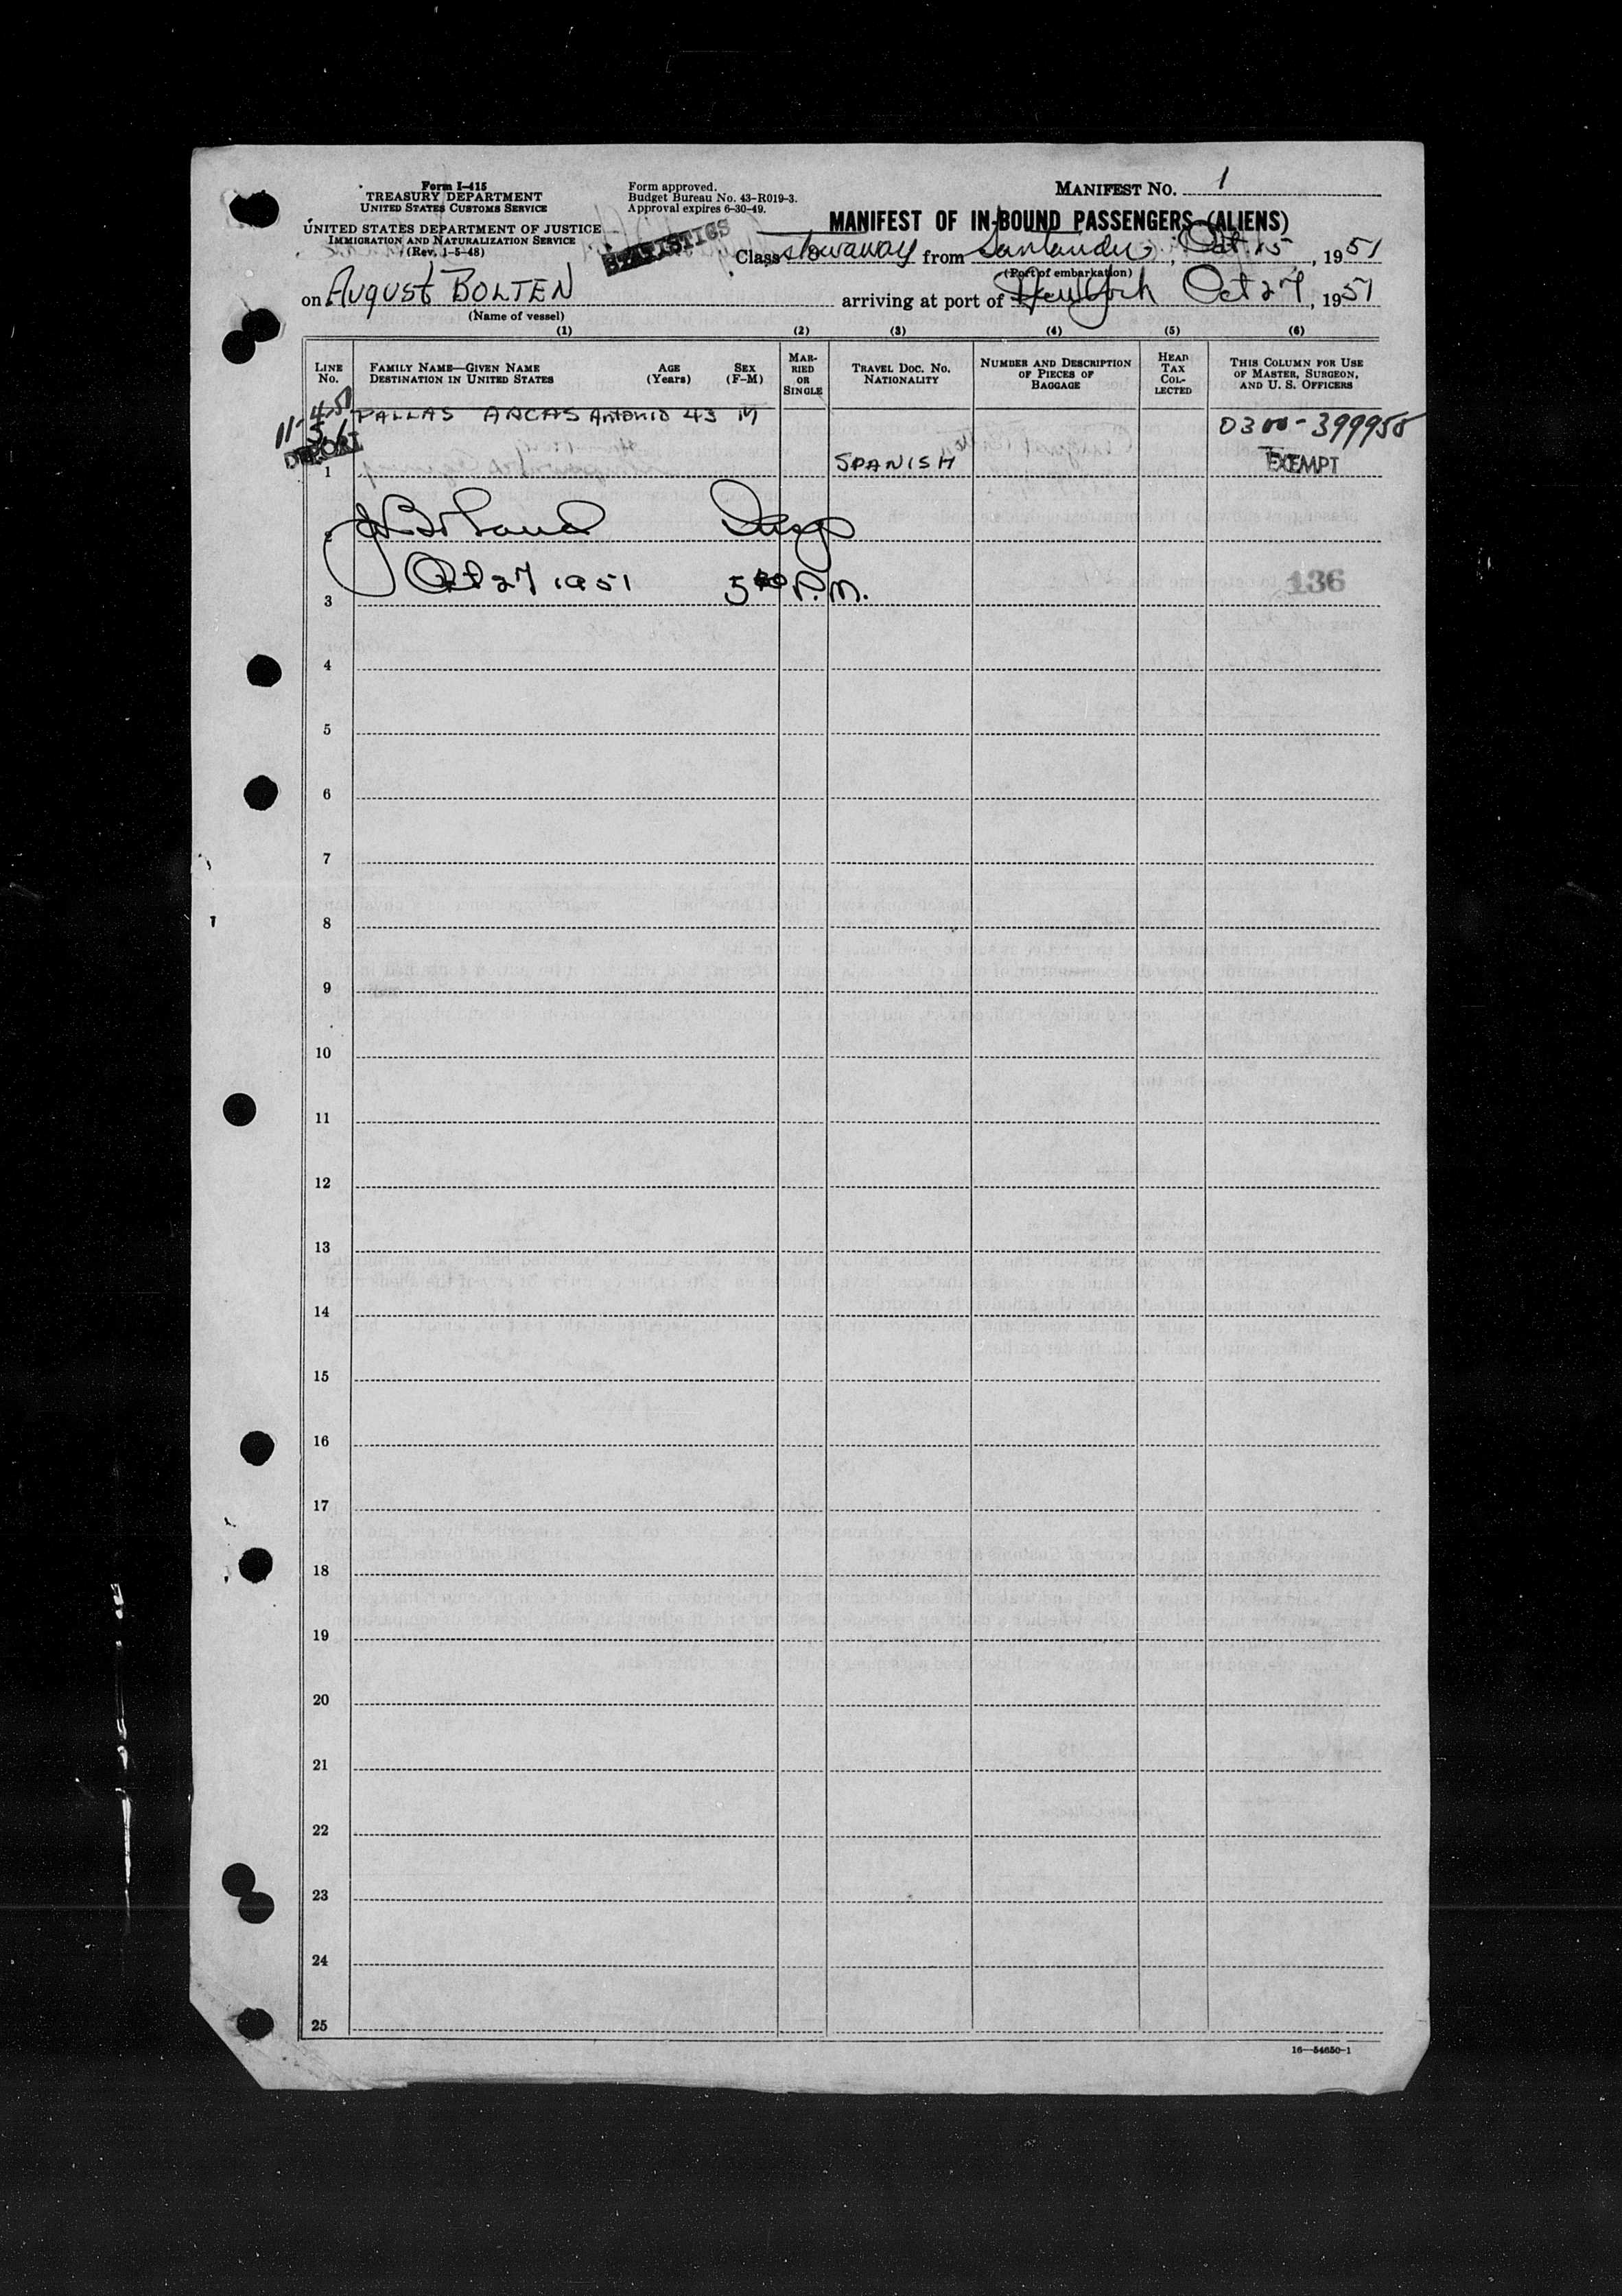 Form I-415
TREASURY DEPARTMENT
UNITED STATES CUSTOMS SERVICE
UNITED STATES DEPARTMENT OF JUSTICE
IMMIGRATION AND NATURALIZATION SERVICE
(Rev. 1-5-48)
Form approved.
Budget Bureau No. 43-R019-3.
Approval expires 6-30-49.
STATISTICS
MANIFEST NO. 1
MANIFEST OF IN-BOUND PASSENGERS (ALIENS)
Class Stowaway from Santander, Oct 15, 1951
(Port of embarkation)
on August BOLTEN arriving at port of New York Oct 27, 1951
(Name of vessel)
(1) (2) (3) (4) (5) (6)
LINE No.
FAMILY NAME—GIVEN NAME
DESTINATION IN UNITED STATES
AGE (Years)
SEX (F-M)
MARRIED OR SINGLE
TRAVEL DOC. NO.
NATIONALITY
NUMBER AND DESCRIPTION OF PIECES OF BAGGAGE
HEAD TAX COLLECTED
THIS COLUMN FOR USE OF MASTER, SURGEON, AND U. S. OFFICERS
PALLAS ANCAS Antonio 43 M
0300-399958
DEPORT
1 SPANISH EXEMPT
2
Oct 27 1951 5 P.M.
136
3
4
5
6
7
8
9
10
11
12
13
14
15
16
17
18
19
20
21
22
23
24
25
16—54650-1